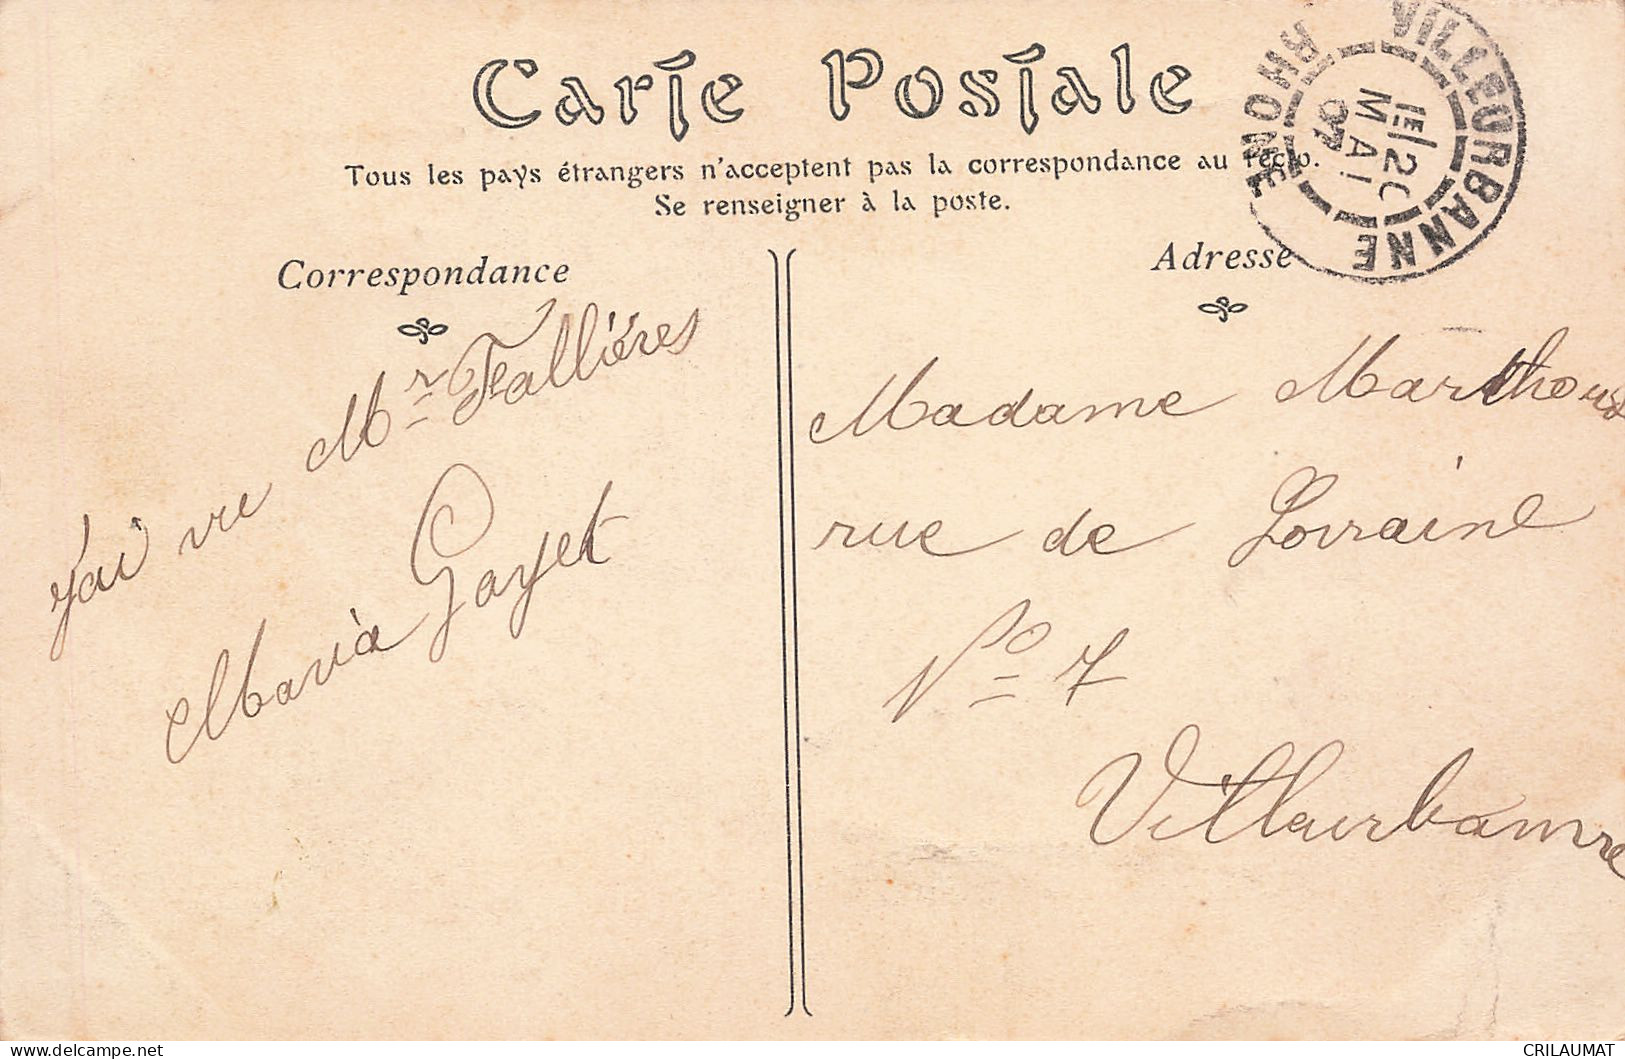 Carte Postale
Tous les pays étrangers n'acceptent pas la correspondance au recto.
Se renseigner à la poste.
Correspondance
Adresse
VILLEURBANNE
RHONE
1E/20
MAI
07
J'ai vu Mr Fallières
Maria Gayet
Madame
rue de Lorraine
No 7
Villeurbanne
delcampe.net
CRILAUMAT